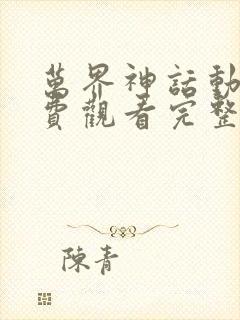 萬界神話動
費觀看完整
陳青